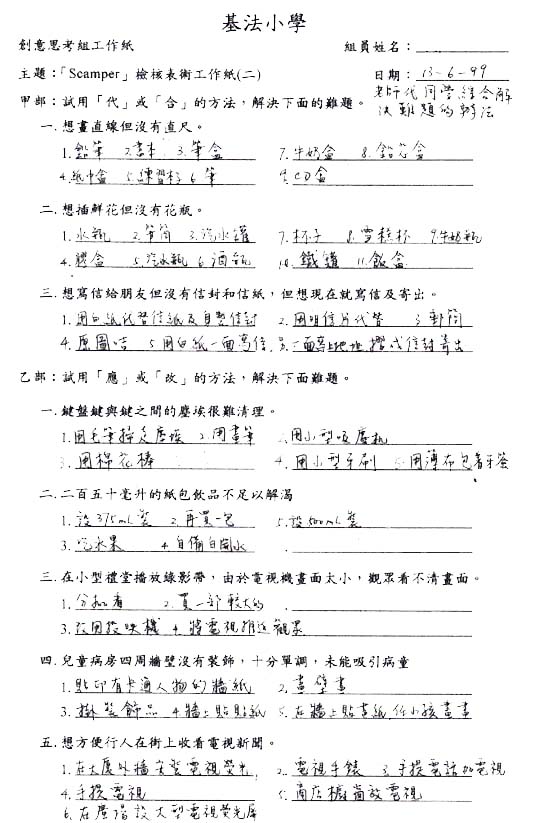 基法小學
創意思考組工作紙 組員姓名：
主題：「Scamper」檢核表術工作紙(二) 日期：13-6-99
老師代同學綜合解
決難題的辦法
甲部：試用「代」或「合」的方法，解決下面的難題。
一. 想畫直線但沒有直尺。
1. 鉛筆 2. 書本 3. 筆盒 7. 牛奶盒 8. 鉛芯盒
4. 紙巾盒 5. 練習本 6. 筆 9. CD盒
二. 想插鮮花但沒有花瓶。
1. 水瓶 2. 筆筒 3. 汽水罐 7. 杯子 8. 雪糕杯 9. 牛奶瓶
4. 禮盒 5. 汽水瓶 6. 酒瓶 10. 鐵罐 11. 飯盒
三. 想寫信給朋友但沒有信封和信紙，但想現在就寫信及寄出。
1. 用白紙代替信紙及自製信封 2. 用明信片代替 3. 郵筒
4. 原圖咭 5. 用白紙一面寫信，另一面寫上地址，摺成信封寄出
乙部：試用「應」或「改」的方法，解決下面難題。
一. 鍵盤鍵與鍵之間的塵埃很難清理。
1. 用毛筆掃走塵埃 2. 用畫筆 用小型吸塵機
3. 用棉花棒 4. 用小型牙刷 5. 用薄布包著牙簽
二. 二百五十毫升的紙包飲品不足以解渴
1. 設375mL裝 2. 再買一包 5. 設500mL裝
3. 吃水果 4. 自備白開水
三. 在小型禮堂播放錄影帶，由於電視機畫面太小，觀眾看不清畫面。
1. 分批看 2. 買一部較大的
3. 改用投映機 4. 將電視推近觀眾
四. 兒童病房四周牆壁沒有裝飾，十分單調，未能吸引病童
1. 貼印有卡通人物的牆紙 2. 畫壁畫
3. 掛裝飾品 4. 牆上貼貼紙 5. 在牆上貼畫紙，任小孩畫畫
五. 想方便行人在街上收看電視新聞。
1. 在大廈外牆安裝電視熒光 2. 電視手錶 3. 手提電話加電視
4. 手提電視 5. 商店櫥窗放電視
6. 在廣場設大型電視熒光屏